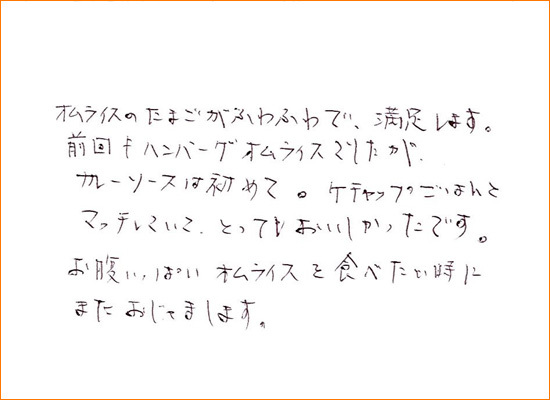 オムライスのたまごがふわふわで、満足します。
前回もハンバーグオムライスでしたが、
カレーソースは初めて。ケチャップのごはんと
マッチしていて、とってもおいしかったです。
お腹いっぱいオムライスを食べたい時に
またおじゃまします。